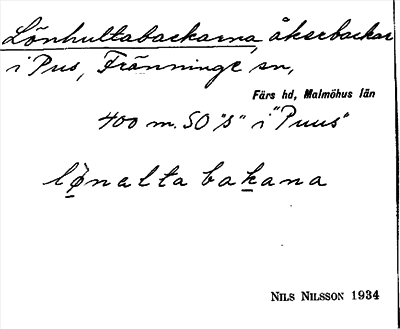 Lönhultabackarna, åkerbackar
i Pus, Fränninge sn,
Färs hd, Malmöhus län
400 m. SO "S" i "Puus"
lønalta bakana
NILS NILSSON 1934